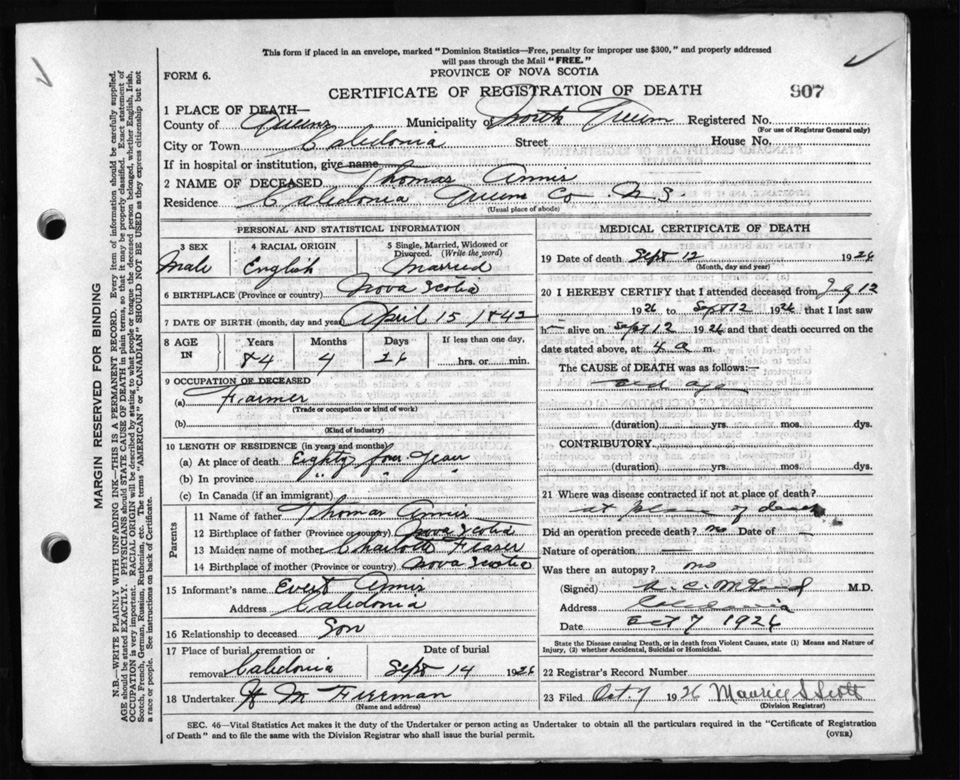 This form if placed in an envelope, marked "Dominion Statistics—Free, penalty for improper use $300," and properly addressed
will pass through the Mail "FREE."
FORM 6.
PROVINCE OF NOVA SCOTIA
CERTIFICATE OF REGISTRATION OF DEATH
907
1 PLACE OF DEATH—
County of Queens Municipality of North Queens Registered No.
(For use of Registrar General only)
City or Town Caledonia Street House No.
If in hospital or institution, give name
2 NAME OF DECEASED Thomas Annis
Residence Caledonia Queens Co. N.S.
(Usual place of abode)
PERSONAL AND STATISTICAL INFORMATION
3 SEX 4 RACIAL ORIGIN 5 Single, Married, Widowed or
Divorced. (Write the word)
Male English Married
6 BIRTHPLACE (Province or country) Nova Scotia
7 DATE OF BIRTH (month, day and year) April 15 1842
8 AGE IN Years Months Days If less than one day,
84 4 26 hrs. or min.
9 OCCUPATION OF DECEASED
(a) Farmer
(Trade or occupation or kind of work)
(b)
(Kind of industry)
10 LENGTH OF RESIDENCE (in years and months)
(a) At place of death Eighty four Years
(b) In province " " "
(c) In Canada (if an immigrant)
Parents
11 Name of father Thomas Annis
12 Birthplace of father (Province or country) Nova Scotia
13 Maiden name of mother Charlotte Frazer
14 Birthplace of mother (Province or country) Nova Scotia
15 Informant's name Evert Annis
Address Caledonia
16 Relationship to deceased Son
17 Place of burial, cremation or Date of burial
removal Caledonia Sept 14 1926
18 Undertaker M Freeman
(Name and address)
MEDICAL CERTIFICATE OF DEATH
19 Date of death Sept 12 1926
(Month, day and year)
20 I HEREBY CERTIFY that I attended deceased from 12
1926 to Sept 12 1926 that I last saw
h— alive on Sept 12 1926 and that death occurred on
date stated above, at 4 a m.
The CAUSE of DEATH was as follows:—
old age
(duration) yrs. mos. dys.
CONTRIBUTORY
(duration) yrs. mos. dys.
21 Where was disease contracted if not at place of death?
at place of death
Did an operation precede death? no Date of —
Nature of operation —
Was there an autopsy? no
(Signed) M.D.
Address Caledonia
Date Oct 7 1926
State the Disease causing Death, or in death from Violent Causes, state (1) Means and Nature of
Injury, (2) whether Accidental, Suicidal or Homicidal.
22 Registrar's Record Number
23 Filed Oct 7 1926 Maurice S Scott
(Division Registrar)
SEC. 46—Vital Statistics Act makes it the duty of the Undertaker or person acting as Undertaker to obtain all the particulars required in the "Certificate of Registration
of Death" and to file the same with the Division Registrar who shall issue the burial permit.
(OVER)
MARGIN RESERVED FOR BINDING
N.B.—WRITE PLAINLY WITH UNFADING INK—THIS IS A PERMANENT RECORD. Every item of information should be carefully supplied.
AGE should be stated EXACTLY. PHYSICIANS should STATE CAUSE OF DEATH in plain terms, so that it may be properly classified. Exact statement of
OCCUPATION is very important. RACIAL ORIGIN will be described by stating to what people or tongue the deceased person belonged, whether English, Irish,
Scotch, French, German, Russian, Ruthenian, etc. The terms "AMERICAN" or "CANADIAN" SHOULD NOT BE USED as they express citizenship but not
a race or people. See instructions on back of Certificate.